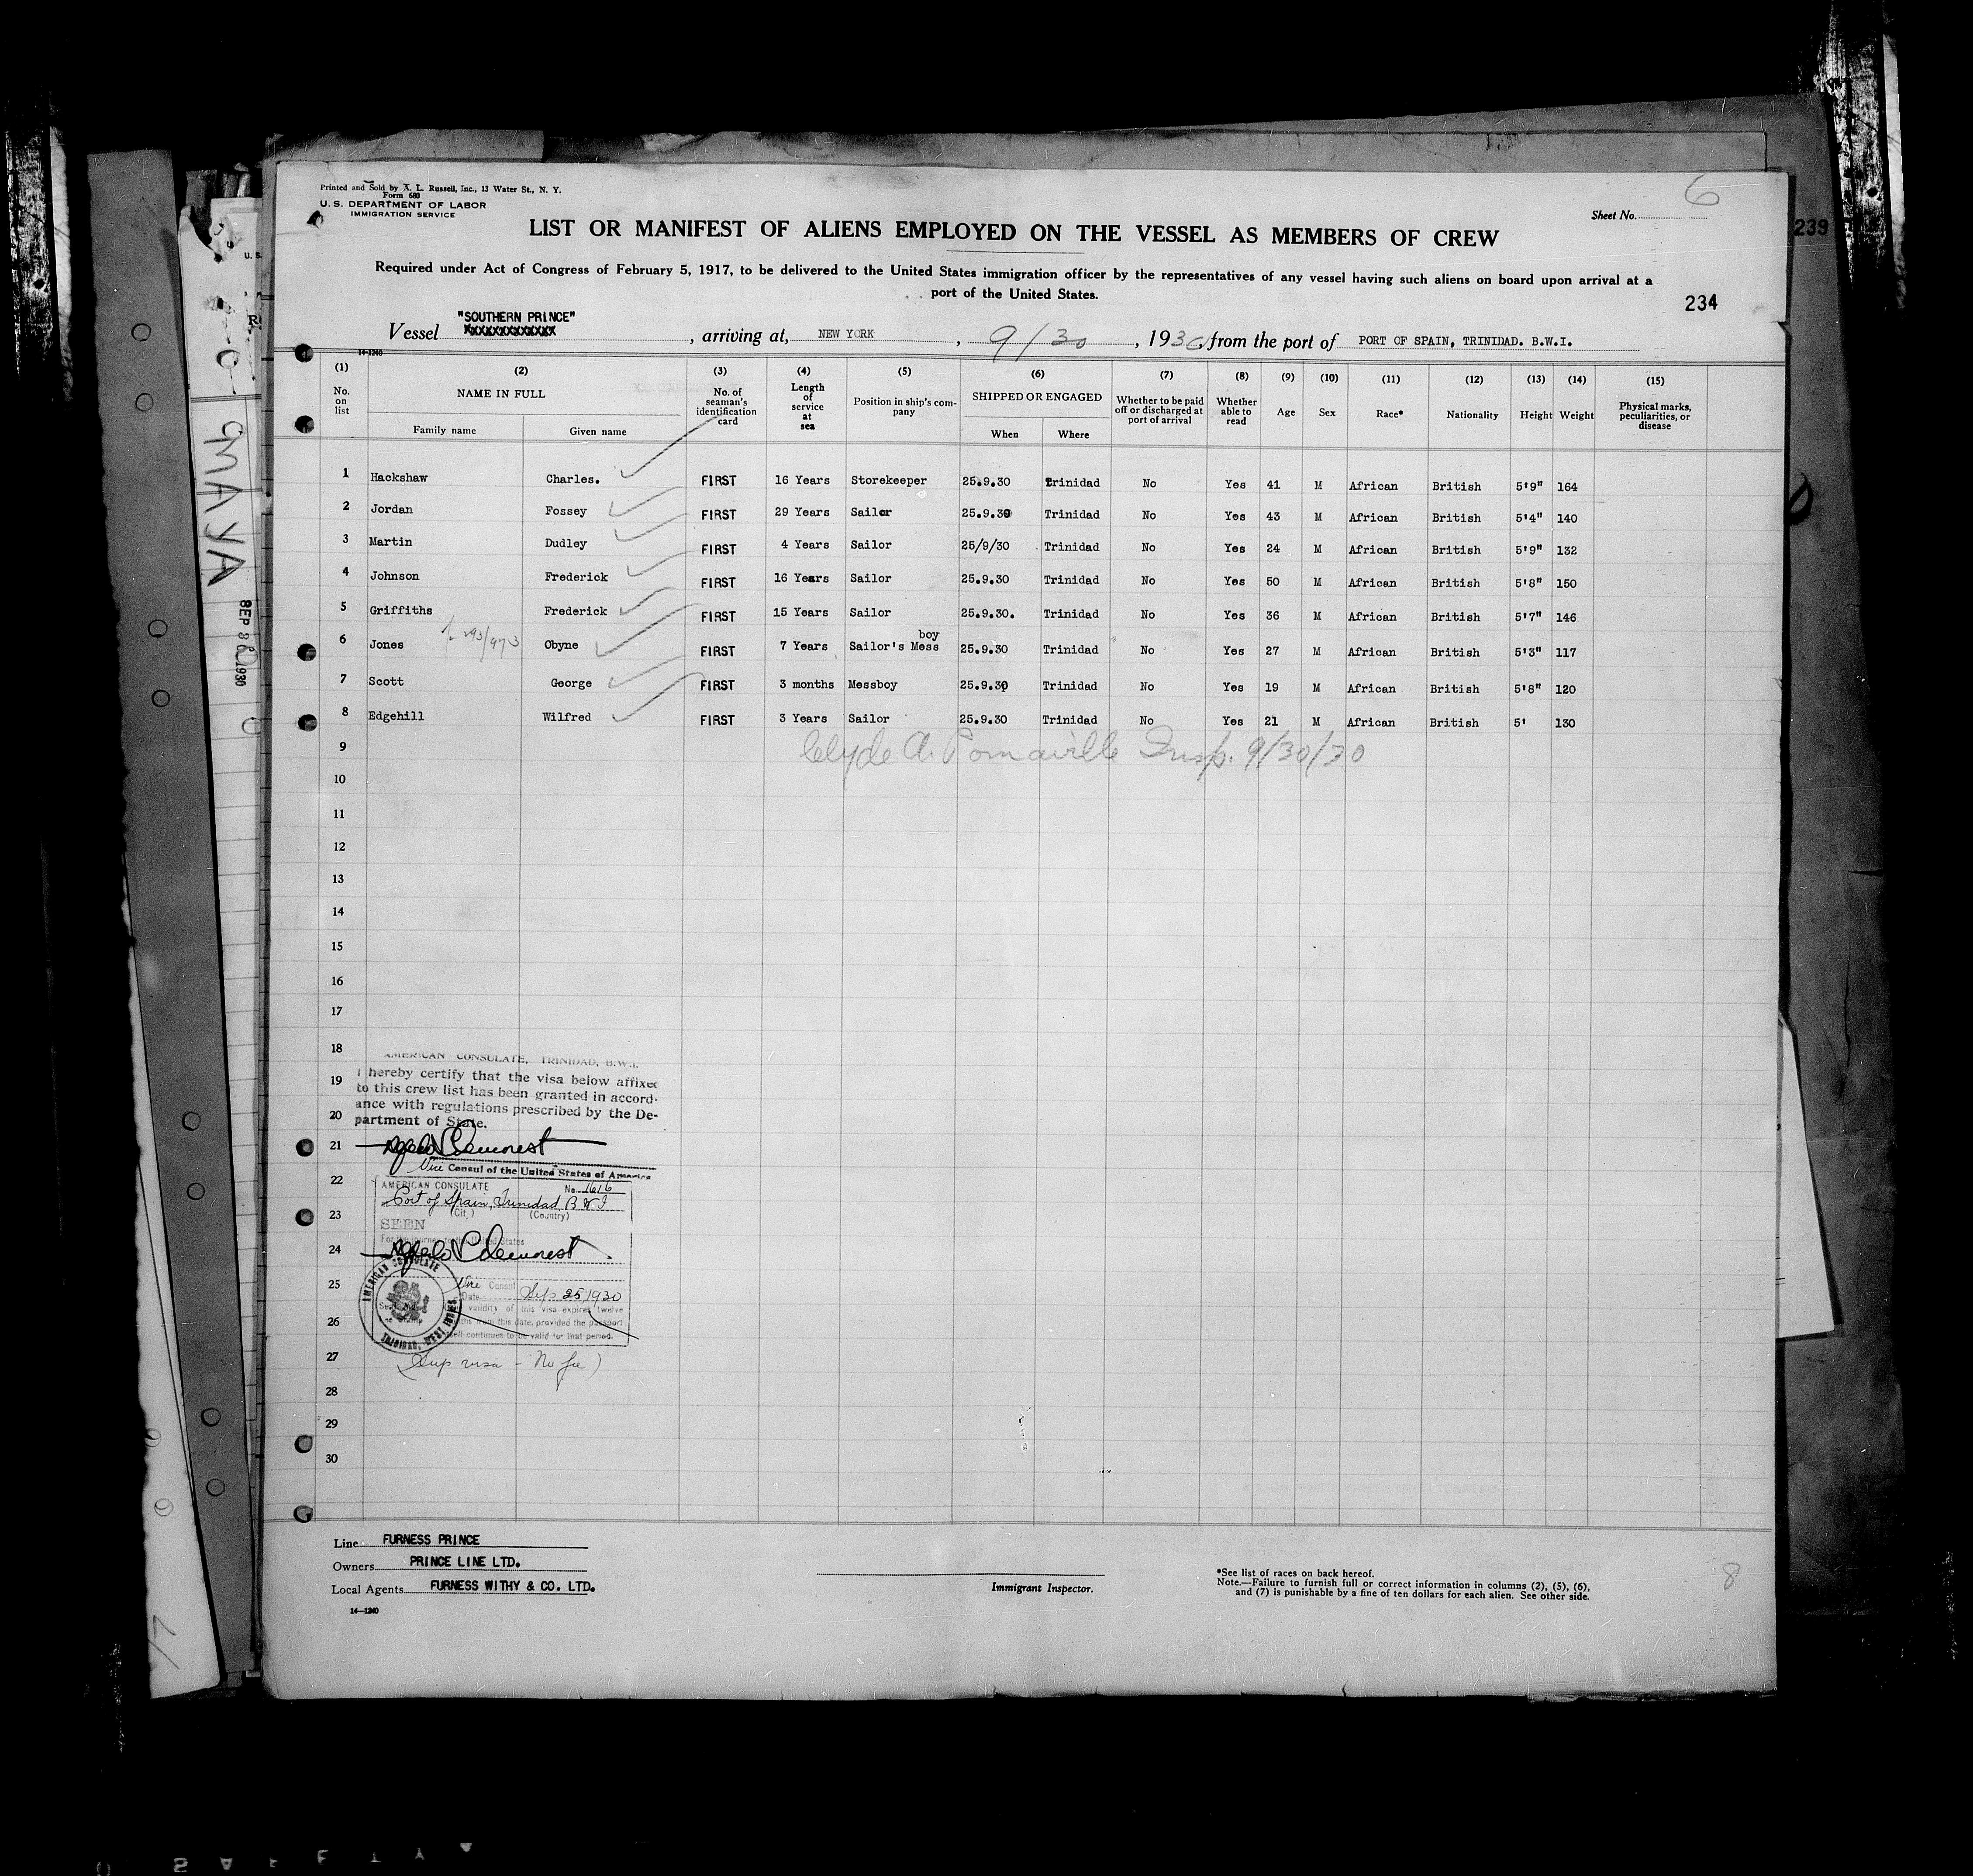 Printed and Sold by A. L. Russell, Inc., 13 Water St., N. Y.
Form 680
U. S. DEPARTMENT OF LABOR
IMMIGRATION SERVICE
6
Sheet No.
LIST OR MANIFEST OF ALIENS EMPLOYED ON THE VESSEL AS MEMBERS OF CREW
239
Required under Act of Congress of February 5, 1917, to be delivered to the United States immigration officer by the representatives of any vessel having such aliens on board upon arrival at a
port of the United States.
234
Vessel "SOUTHERN PRINCE" , arriving at, NEW YORK , 9/30 , 1930, from the port of PORT OF SPAIN, TRINIDAD. B.W.I.
14-1240
(1) (2) (3) (4) (5) (6) (7) (8) (9) (10) (11) (12) (13) (14) (15)
No. on list NAME IN FULL Family name Given name No. of seaman's identification card Length of service at sea Position in ship's company SHIPPED OR ENGAGED When Where Whether to be paid off or discharged at port of arrival Whether able to read Age Sex Race* Nationality Height Weight Physical marks, peculiarities, or disease
1 Hackshaw Charles. FIRST 16 Years Storekeeper 25.9.30 Trinidad No Yes 41 M African British 5'9" 164
2 Jordan Fossey FIRST 29 Years Sailor 25.9.30 Trinidad No Yes 43 M African British 5'4" 140
3 Martin Dudley FIRST 4 Years Sailor 25/9/30 Trinidad No Yes 24 M African British 5'9" 132
4 Johnson Frederick FIRST 16 Years Sailor 25.9.30 Trinidad No Yes 50 M African British 5'8" 150
5 Griffiths Frederick FIRST 15 Years Sailor 25.9.30. Trinidad No Yes 36 M African British 5'7" 146
6 Jones Obyne FIRST 7 Years Sailor's Mess boy 25.9.30 Trinidad No Yes 27 M African British 5'3" 117
7 Scott George FIRST 3 months Messboy 25.9.30 Trinidad No Yes 19 M African British 5'8" 120
8 Edgehill Wilfred FIRST 3 Years Sailor 25.9.30 Trinidad No Yes 21 M African British 5' 130
9 Clyde A. Pomaville Insp. 9/30/30
10
11
12
13
14
15
16
17
18
19
20
21
22
23
24
25
26
27
28
29
30
AMERICAN CONSULATE, TRINIDAD, B.W.I.
I hereby certify that the visa below affixed
to this crew list has been granted in accord-
ance with regulations prescribed by the De-
partment of State.
Vice Consul of the United States of America
AMERICAN CONSULATE No. 1616
Port of Spain, Trinidad B W I
(City) (Country)
SEEN
For the journey to the United States
Vice Consul
Date Sep. 25 1930
validity of this visa expires twelve
months from this date, provided the passport
itself continues to be valid for that period.
AMERICAN CONSULATE
TRINIDAD, WEST INDIES
(Sup visa - No fee)
Line FURNESS PRINCE
Owners PRINCE LINE LTD.
Local Agents FURNESS WITHY & CO. LTD.
14—1240
Immigrant Inspector.
*See list of races on back hereof.
Note.—Failure to furnish full or correct information in columns (2), (5), (6),
and (7) is punishable by a fine of ten dollars for each alien. See other side.
8
MAYA
SEP 30 1930
SAFETY